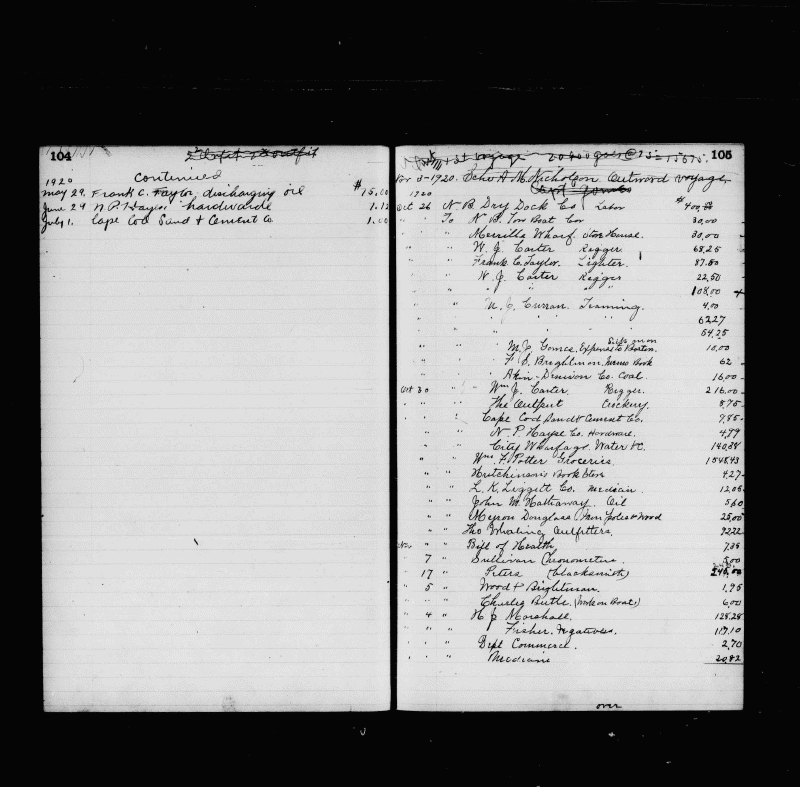 104
Continued
1920
May 29. Frank C. Taylor, discharging oil $15.00
June 29 N. P. Hayes. hardware 1.12
July 1. Cape Cod Sand & Cement Co 1.00
105
1st Voyage 20400 gals @ 75 = 15675
Nov 5-1920. Schr A. M. Nicholson Outward voyage.
1920
Oct 26 N B Dry Dock Co Labor $400.
" " To N. B. Tow Boat Co 30.00
" " Merrills Wharf Store House. 30.00
" " W. J. Carter Rigger 68.25
" " Frank C. Taylor. Lighter. 87.50
" " W. J. Carter Rigger 22.50
" " " " " 108.00
" " Curran. Teaming. 4.00
" " " " " 62.27
" " " " " 54.25
" " M. J. Gomes. Expense to Boston. 10.00
" " F. S. Brightman. Memo Book 62
" " Akin-Denison Co. Coal. 16.00
Oct 30 " Wm J. Carter. Rigger. 216.00
" " The Outlet Crockery. 8.75
" " To Cape Cod Sand & Cement Co. 9.85
" " N. P. Hayes Co. Hardware. 4.99
" " City Wharfage. Water &C. 140.38
" " Wm F. Potter Groceries. 1548.43
" " Hutchinson's Book Store 4.27
" " L. K. Liggett Co. Medicin. 12.05
" " John M. Hathaway. Oil 5.60
" " Myron Douglass Poles & Wood 25.00
" " The Whaling Outfitters. 92.22
Nov " Bill of Health 7.38
" 7 " Sullivan Chronometer. 5.00
" 17 " Peters (blacksmith) 240.00
" 5 " Wood & Brightman. 1.95
" " Charley (Work on Boat) 6.00
" 4 " H J Marshall. 128.28
" " " Fisher. Negatives. 117.10
" " " Dept Commerce. 2.70
" " " Medicine 20.82
over